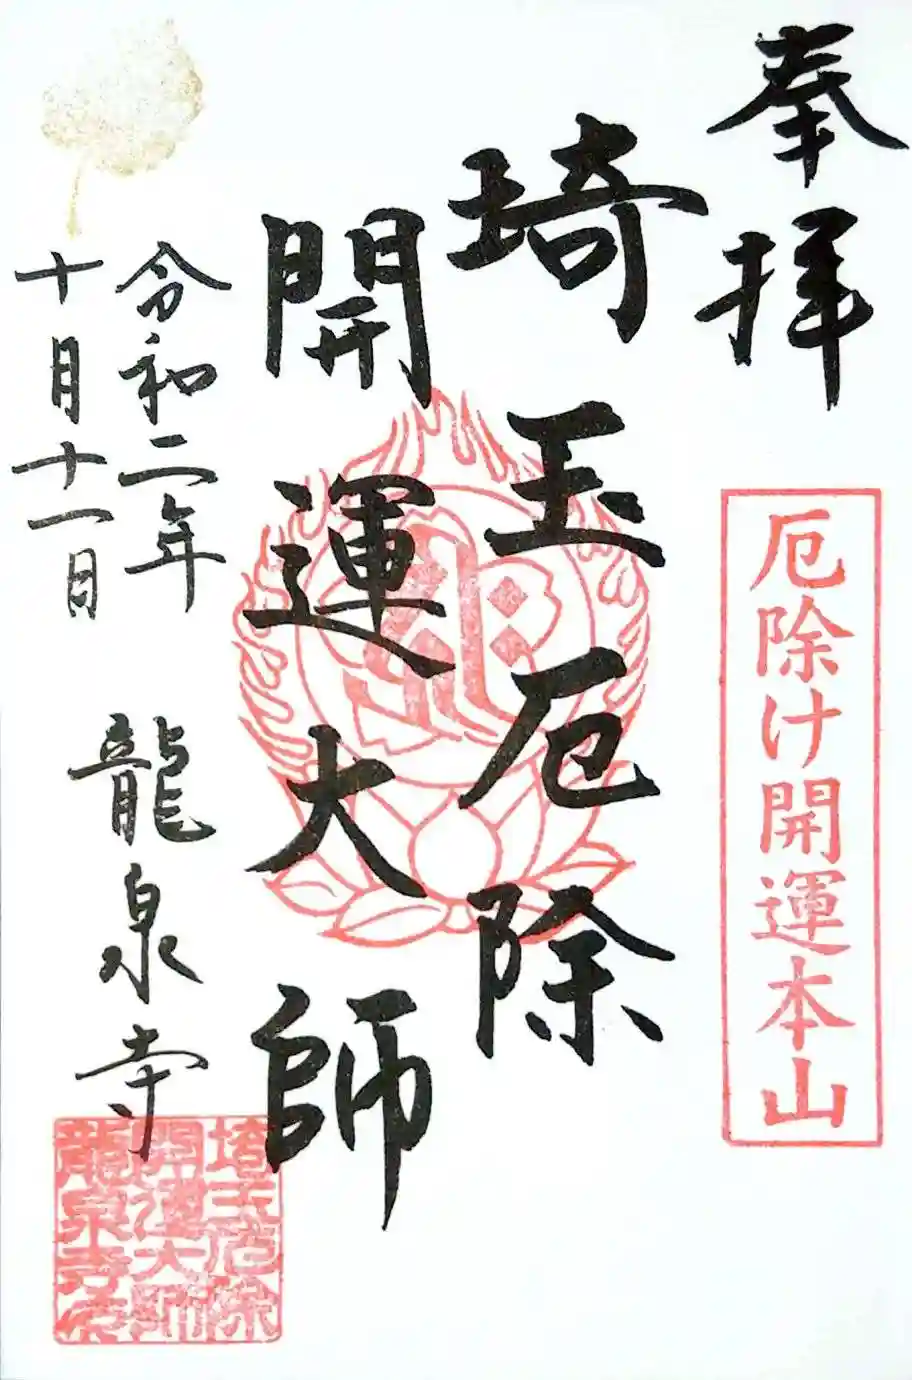 奉拝
厄除け開運本山
埼玉厄除
開運大師
令和二年
十月十一日
龍泉寺
埼玉厄除
開運大師
龍泉寺